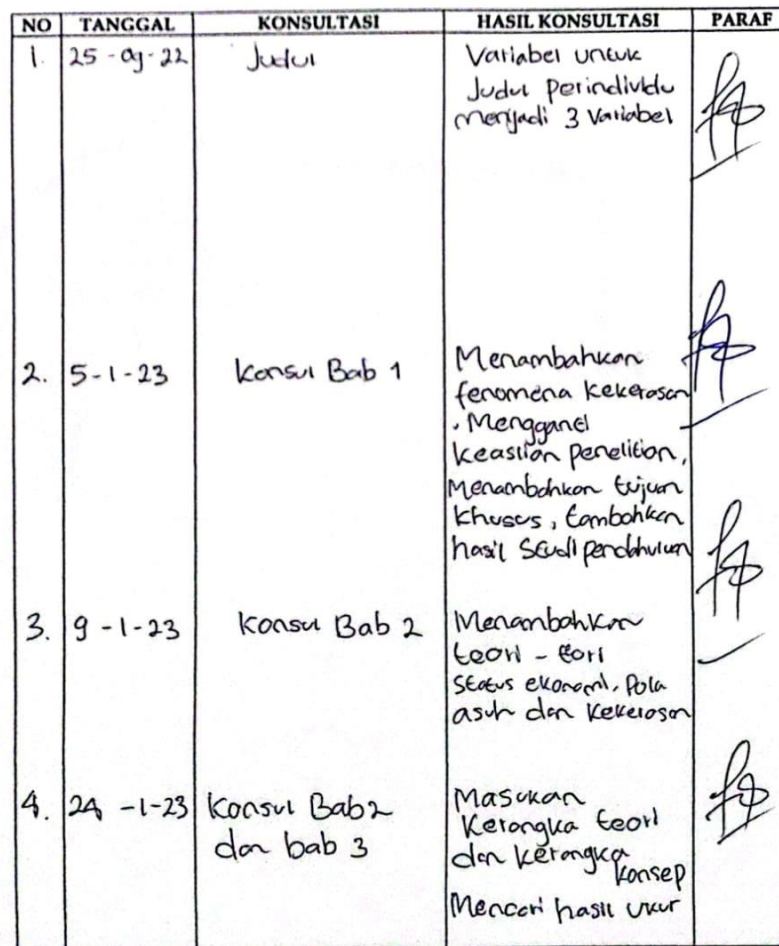 NO TANGGAL KONSULTASI HASIL KONSULTASI PARAF
1. 25 - 09 - 22 Judul Variabel untuk
Judul perindividu
menjadi 3 variabel
2. 5 - 1 - 23 Konsul Bab 1 Menambahkan
fenomena kekerasan
, Mengganti
keaslian penelitian,
Menambahkan tujuan
khusus, tambahkan
hasil studi pendahuluan
3. 9 - 1 - 23 Konsul Bab 2 Menambahkan
teori - teori
status ekonomi, Pola
asuh dan kekerasan
4. 24 - 1 - 23 Konsul Bab 2 Masukan
dan bab 3 Kerangka teori
dan kerangka
konsep
Mencari hasil ukur